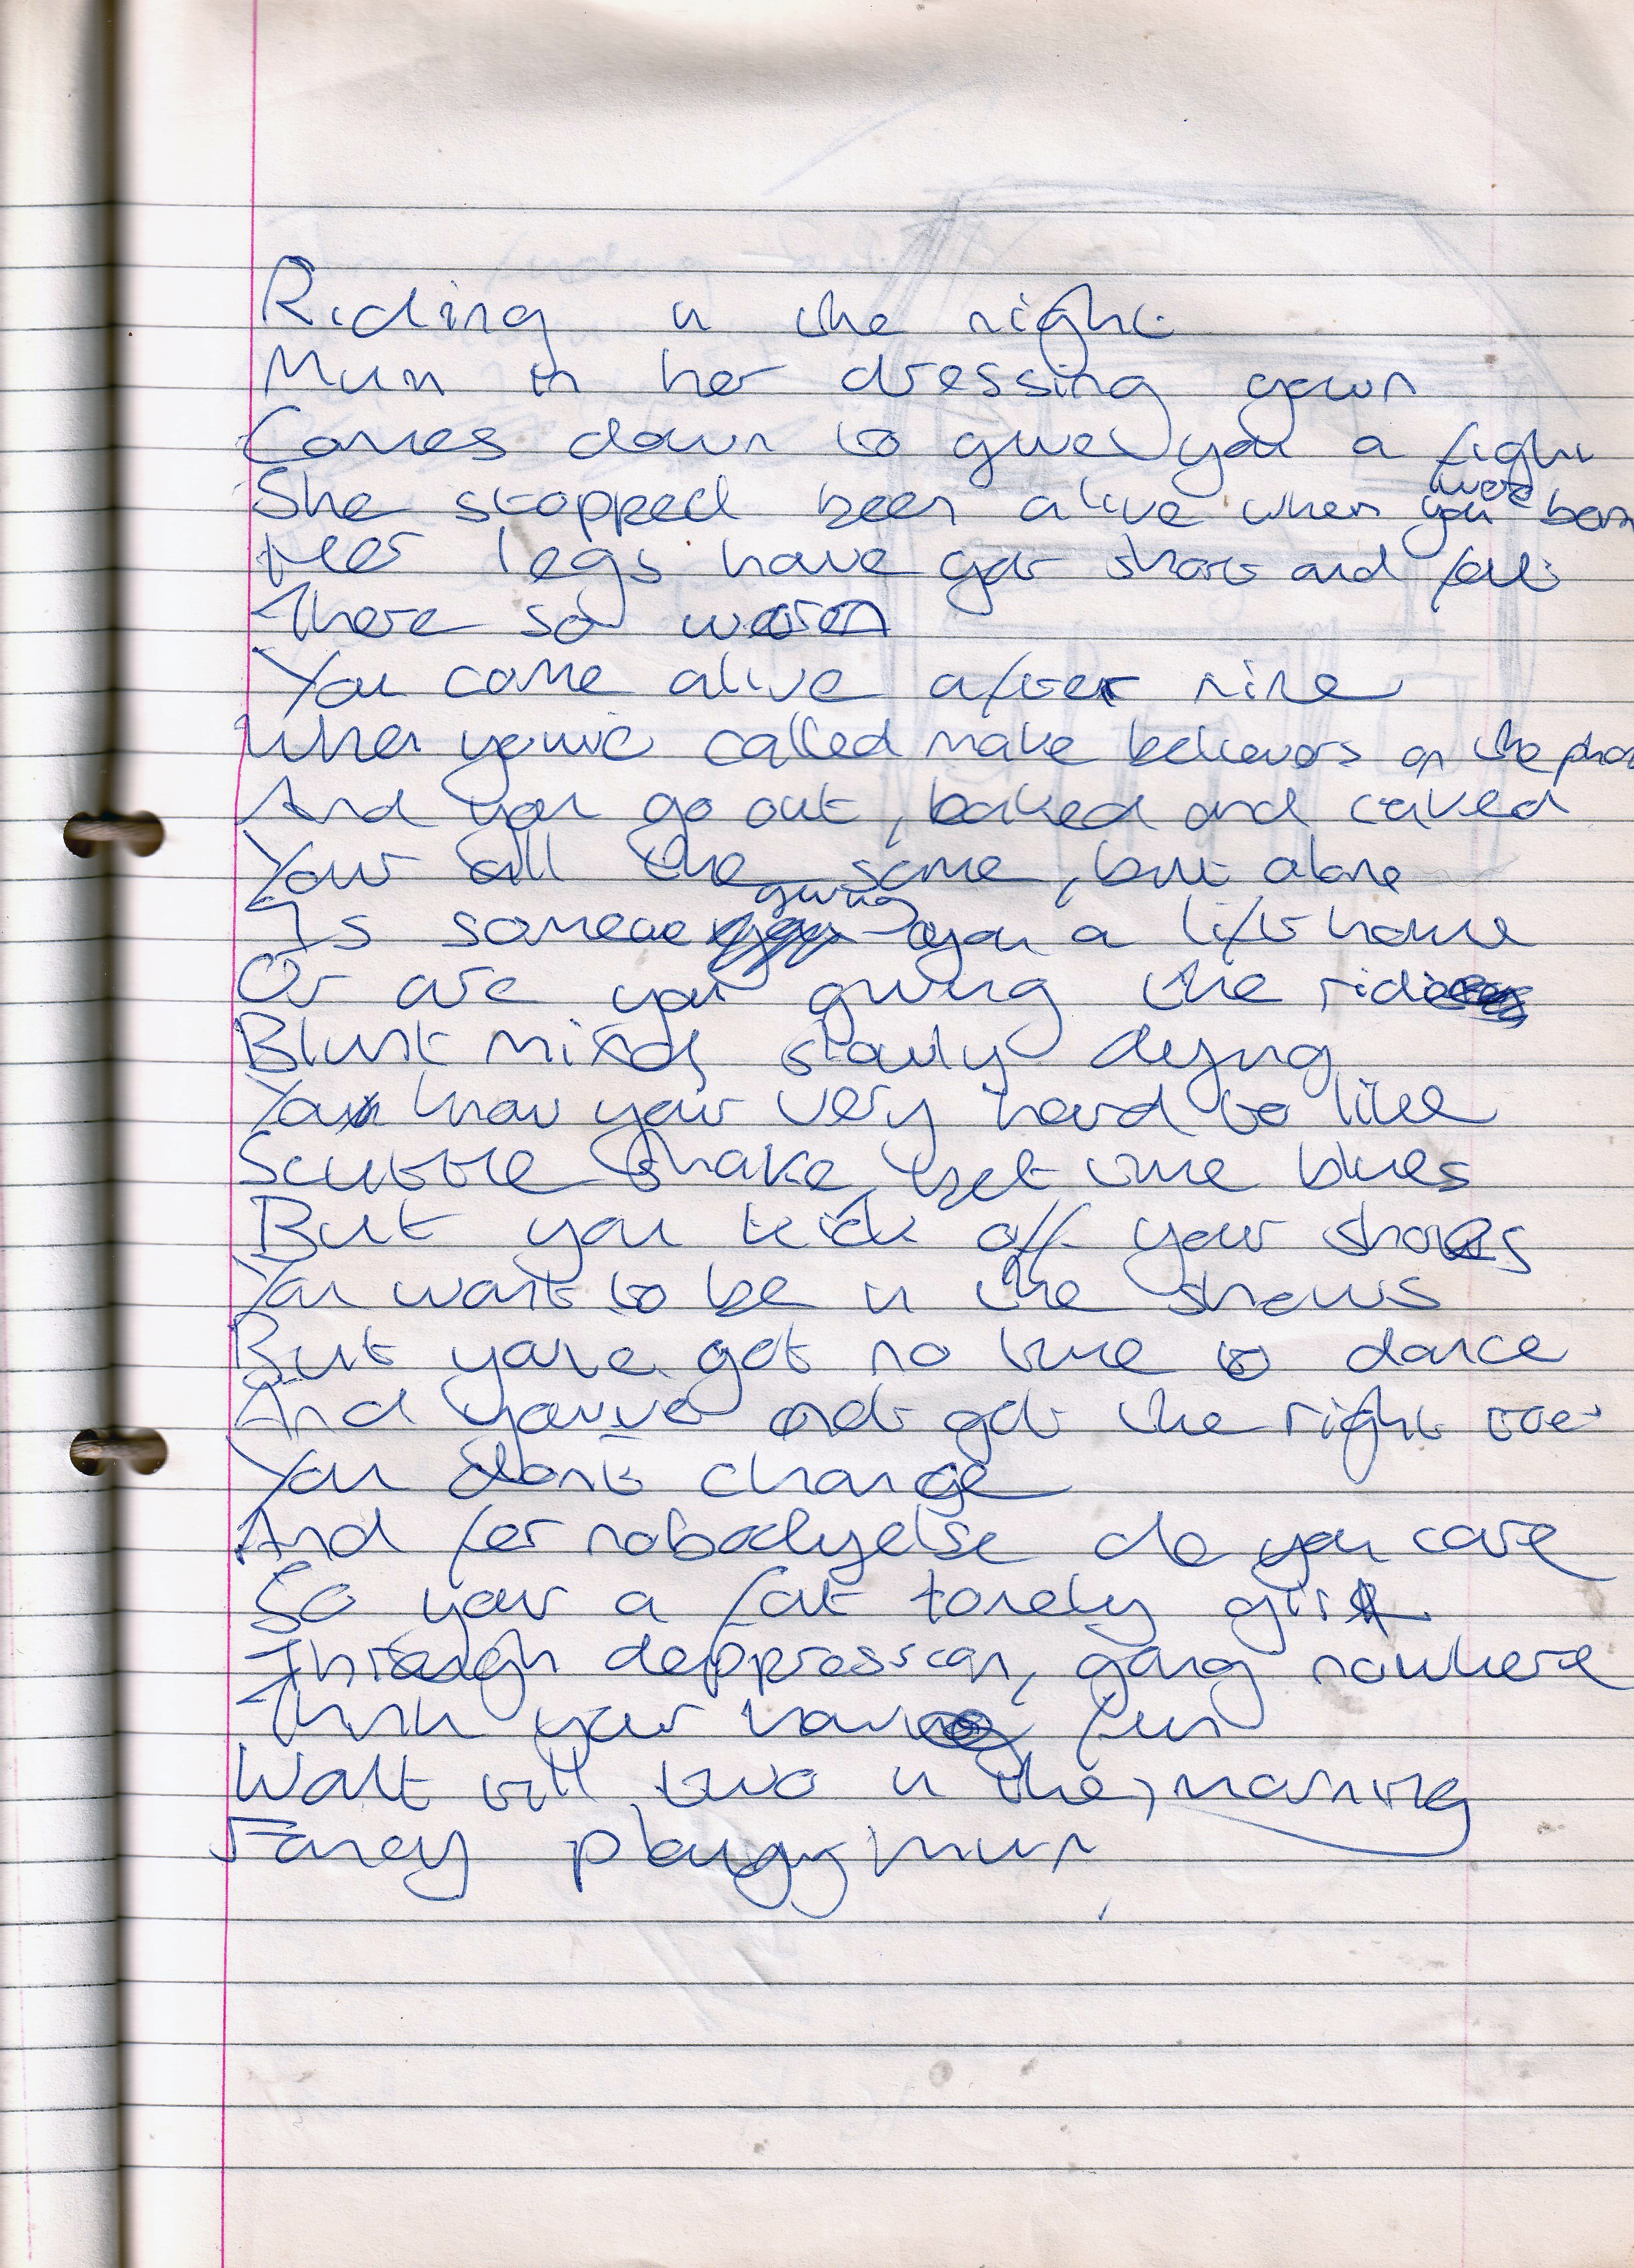 Riding in the night
Mum in her dressing gown
Comes down to give you a fight
She stopped been alive when you were born
Her legs have got short and fat
There so worn
You come alive after nine
When youve called make believers on the phone
And you go out, baked and caked
Your still the same, but alone
Is someone giving you a lift home
Or are you giving the ride
Blunt minds slowly dying
You know your very hard to like
Scuttle shake, get the blues
But you kick off your shoes
You want to be in the shows
But youve got no time to dance
And youve not got the right
You dont change
And for nobodyelse do you care
So your a fat lonely girl
Through deppression, going nowhere
Think your having fun
Wait till two in the morning
Fancy playing mum